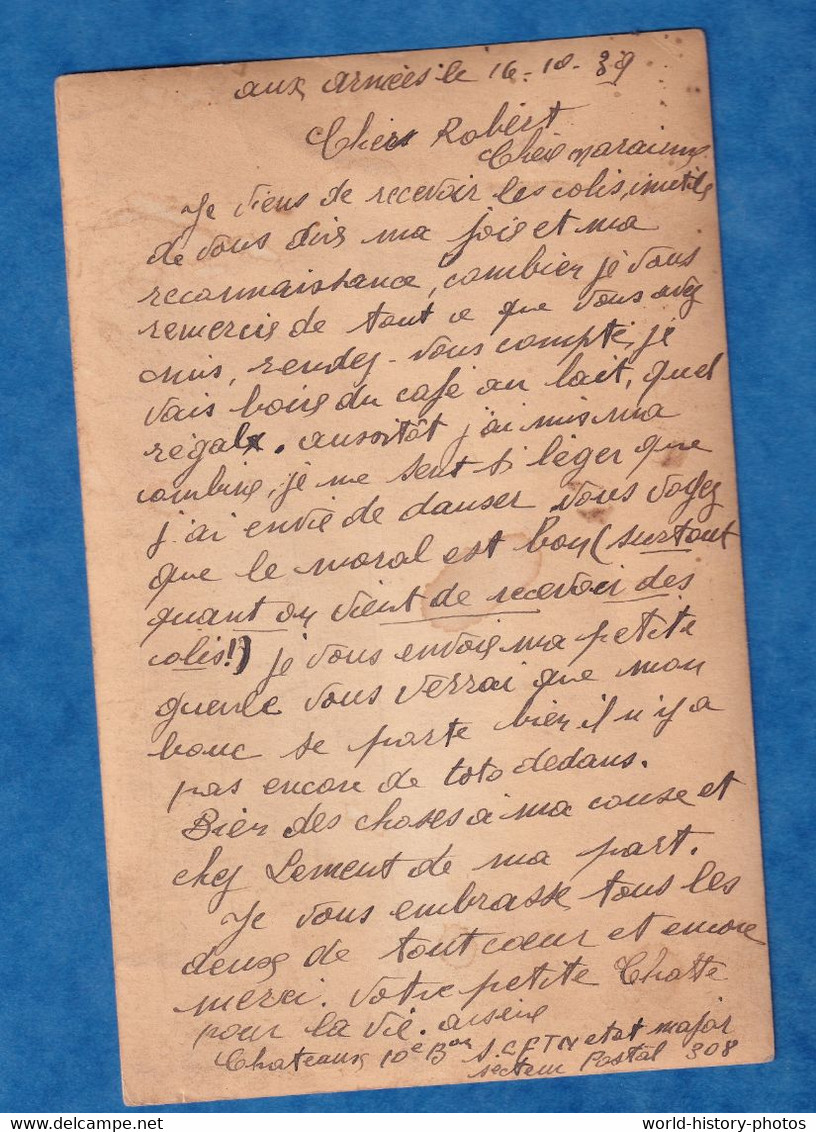 aux armées le 16-10-39
Chers Robert
Cher
Je viens de recevoir les colis, inutile
de vous dire ma joie et ma
reconnaissance, combien je vous
remercie de tout ce que vous avez
mis, rendez-vous compte, je
vais boire du café au lait, quel
régal. aussitôt j'ai mis ma
combine, je me sent si léger que
j'ai envie de danser vous voyez
que le moral est bon (surtout
quant on vient de recevoir des
colis!) je vous envoie ma petite
gueule vous verrai que mon
bouc se porte bien il n'y a
pas encore de toto dedans.
Bien des choses à ma couse et
chez Lement de ma part.
Je vous embrasse tous les
deux de tout cœur et encore
merci. votre petite Chatte
pour la vie. arsène
Chateaux 10e Bon état major
secteur Postal 308
world-history-photos